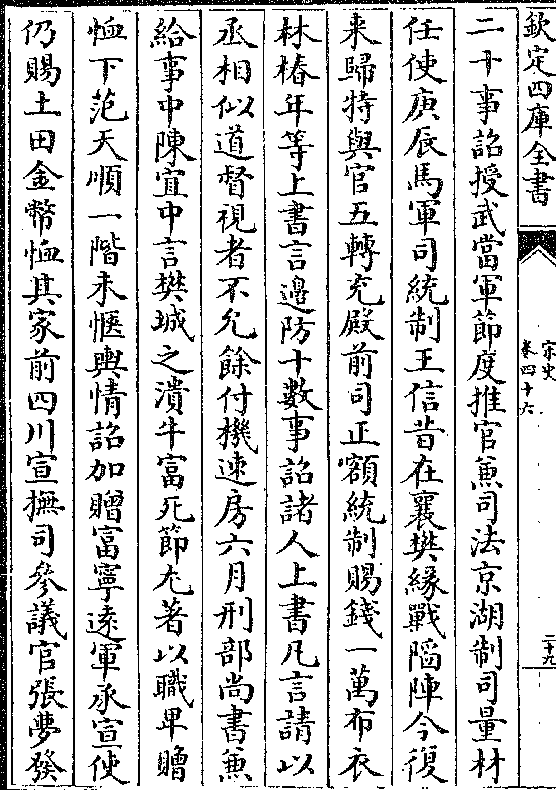 欽定四庫全書
宋史
卷四十六
二十九
二十事詔授武當軍節度推官兼司法京湖制司量材
任使庚辰馬軍司統制王信昔在襄樊緣戰陷陣今復
来歸特與官五轉充殿前司正額統制賜錢一萬布衣
林椿年等上書言邉防十數事詔諸人上書凡言請以
丞相似道督視者不允餘付機速房六月刑部尚書兼
給事中陳宜中言樊城之潰牛富死節尤著以職卑贈
恤下范天順一階未愜輿情詔加贈富寧逺軍承宣使
仍賜土田金幣恤其家前四川宣撫司參議官張夢發